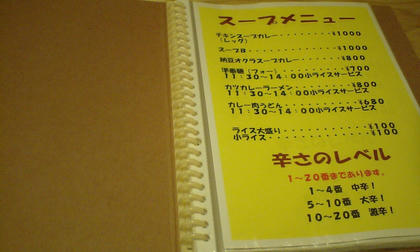 スープメニュー
チキンスープカレー・・・・・・・・¥1000
(レッグ)
スープB・・・・・・・・・・・・・・¥1000
納豆オクラスープカレー・・・・・・¥800
(フォー)・・・・・・・・¥700
11:30~14:00小ライスサービス
カツカレーラーメン・・・・・・・・¥800
11:30~14:00小ライスサービス
カレー肉うどん・・・・・・・・・・¥680
11:30~14:00小ライスサービス
ライス大盛り・・・・・・・・・・・¥100
小ライス・・・・・・・・・・・・・¥100
辛さのレベル
1~20番まであります。
1~4番 中辛!
5~10番 大辛!
10~20番 激辛!